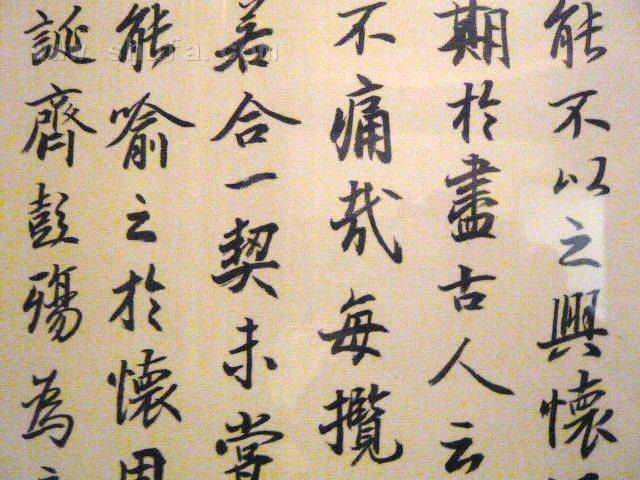 能不以之興懷
期於盡古人云
不痛哉每攬
若合一契未嘗
能喻之於懷固
誕齊彭殤為